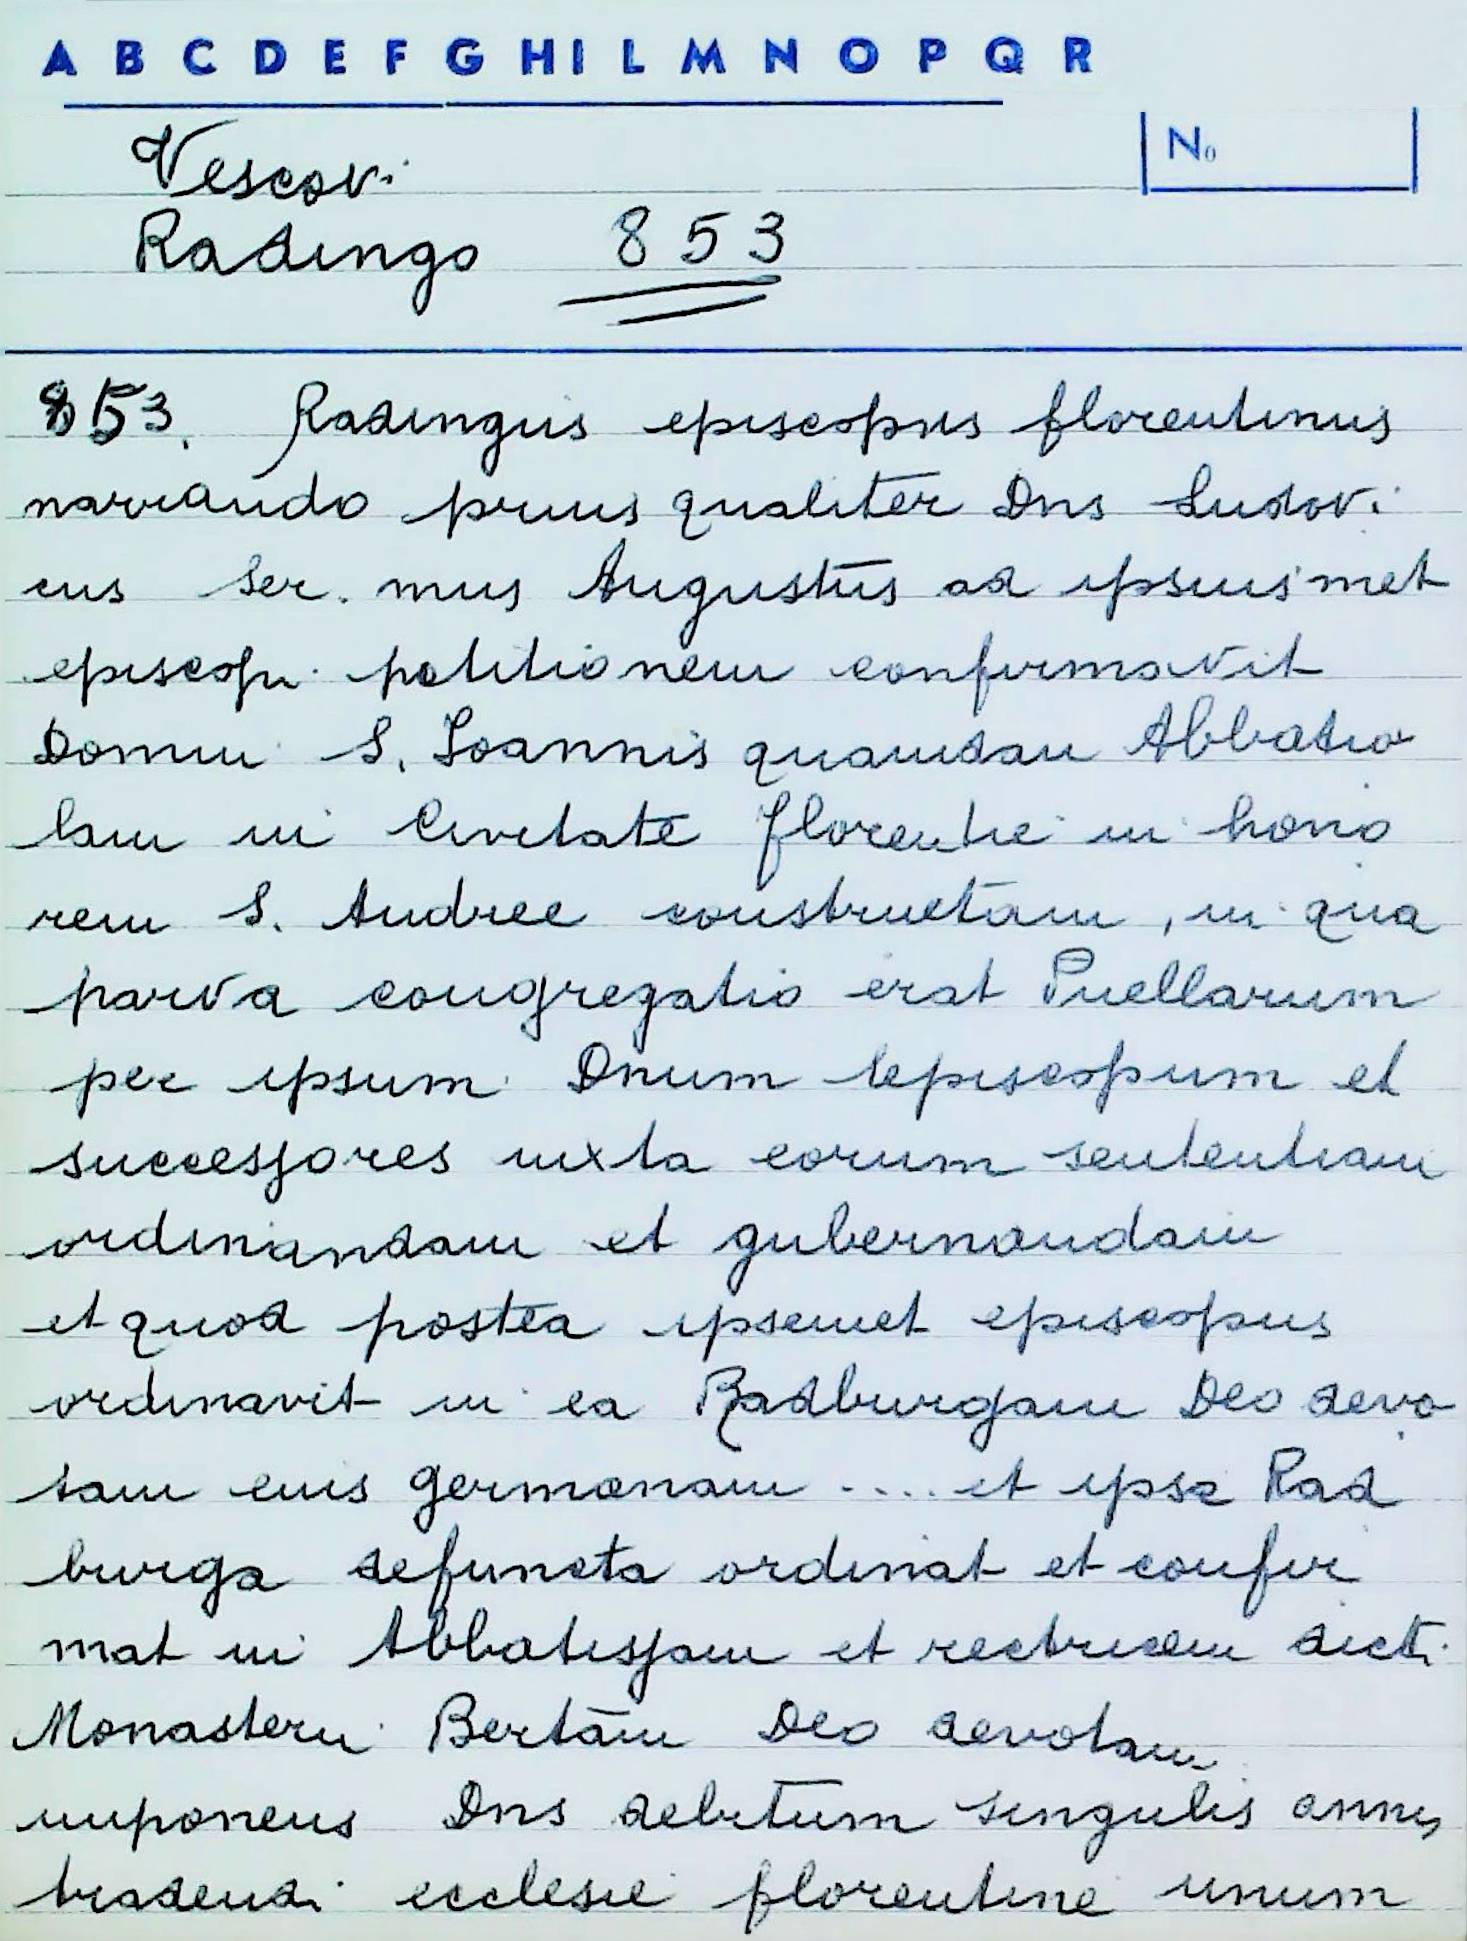 A B C D E F G H I L M N O P Q R
No
Vescovi
Radingo 853
853. Radingus episcopus florentinus
narrando prius qualiter Dns Ludovi
cus Ser. mus Augustus ad ipsius met
episcopi petitionem confirmavit
Domui S. Joannis quamdam Abbatio
lam in Civitate florentie in hono
rem S. Andree constructam, in qua
parva congregatio erat Puellarum
per ipsum Dnum episcopum et
successores iuxta eorum sententiam
ordinandam et gubernandam
et quod postea ipsemet episcopus
ordinavit in ea Radburgam Deo devo
tam eius germanam .... et ipsa Rad
burga defuncta ordinat et confir
mat in Abbatissam et rectricem dicti
Monasterii Bertam Deo devotam
imponens Dns debitum singulis annis
tradendi ecclesie florentine unum